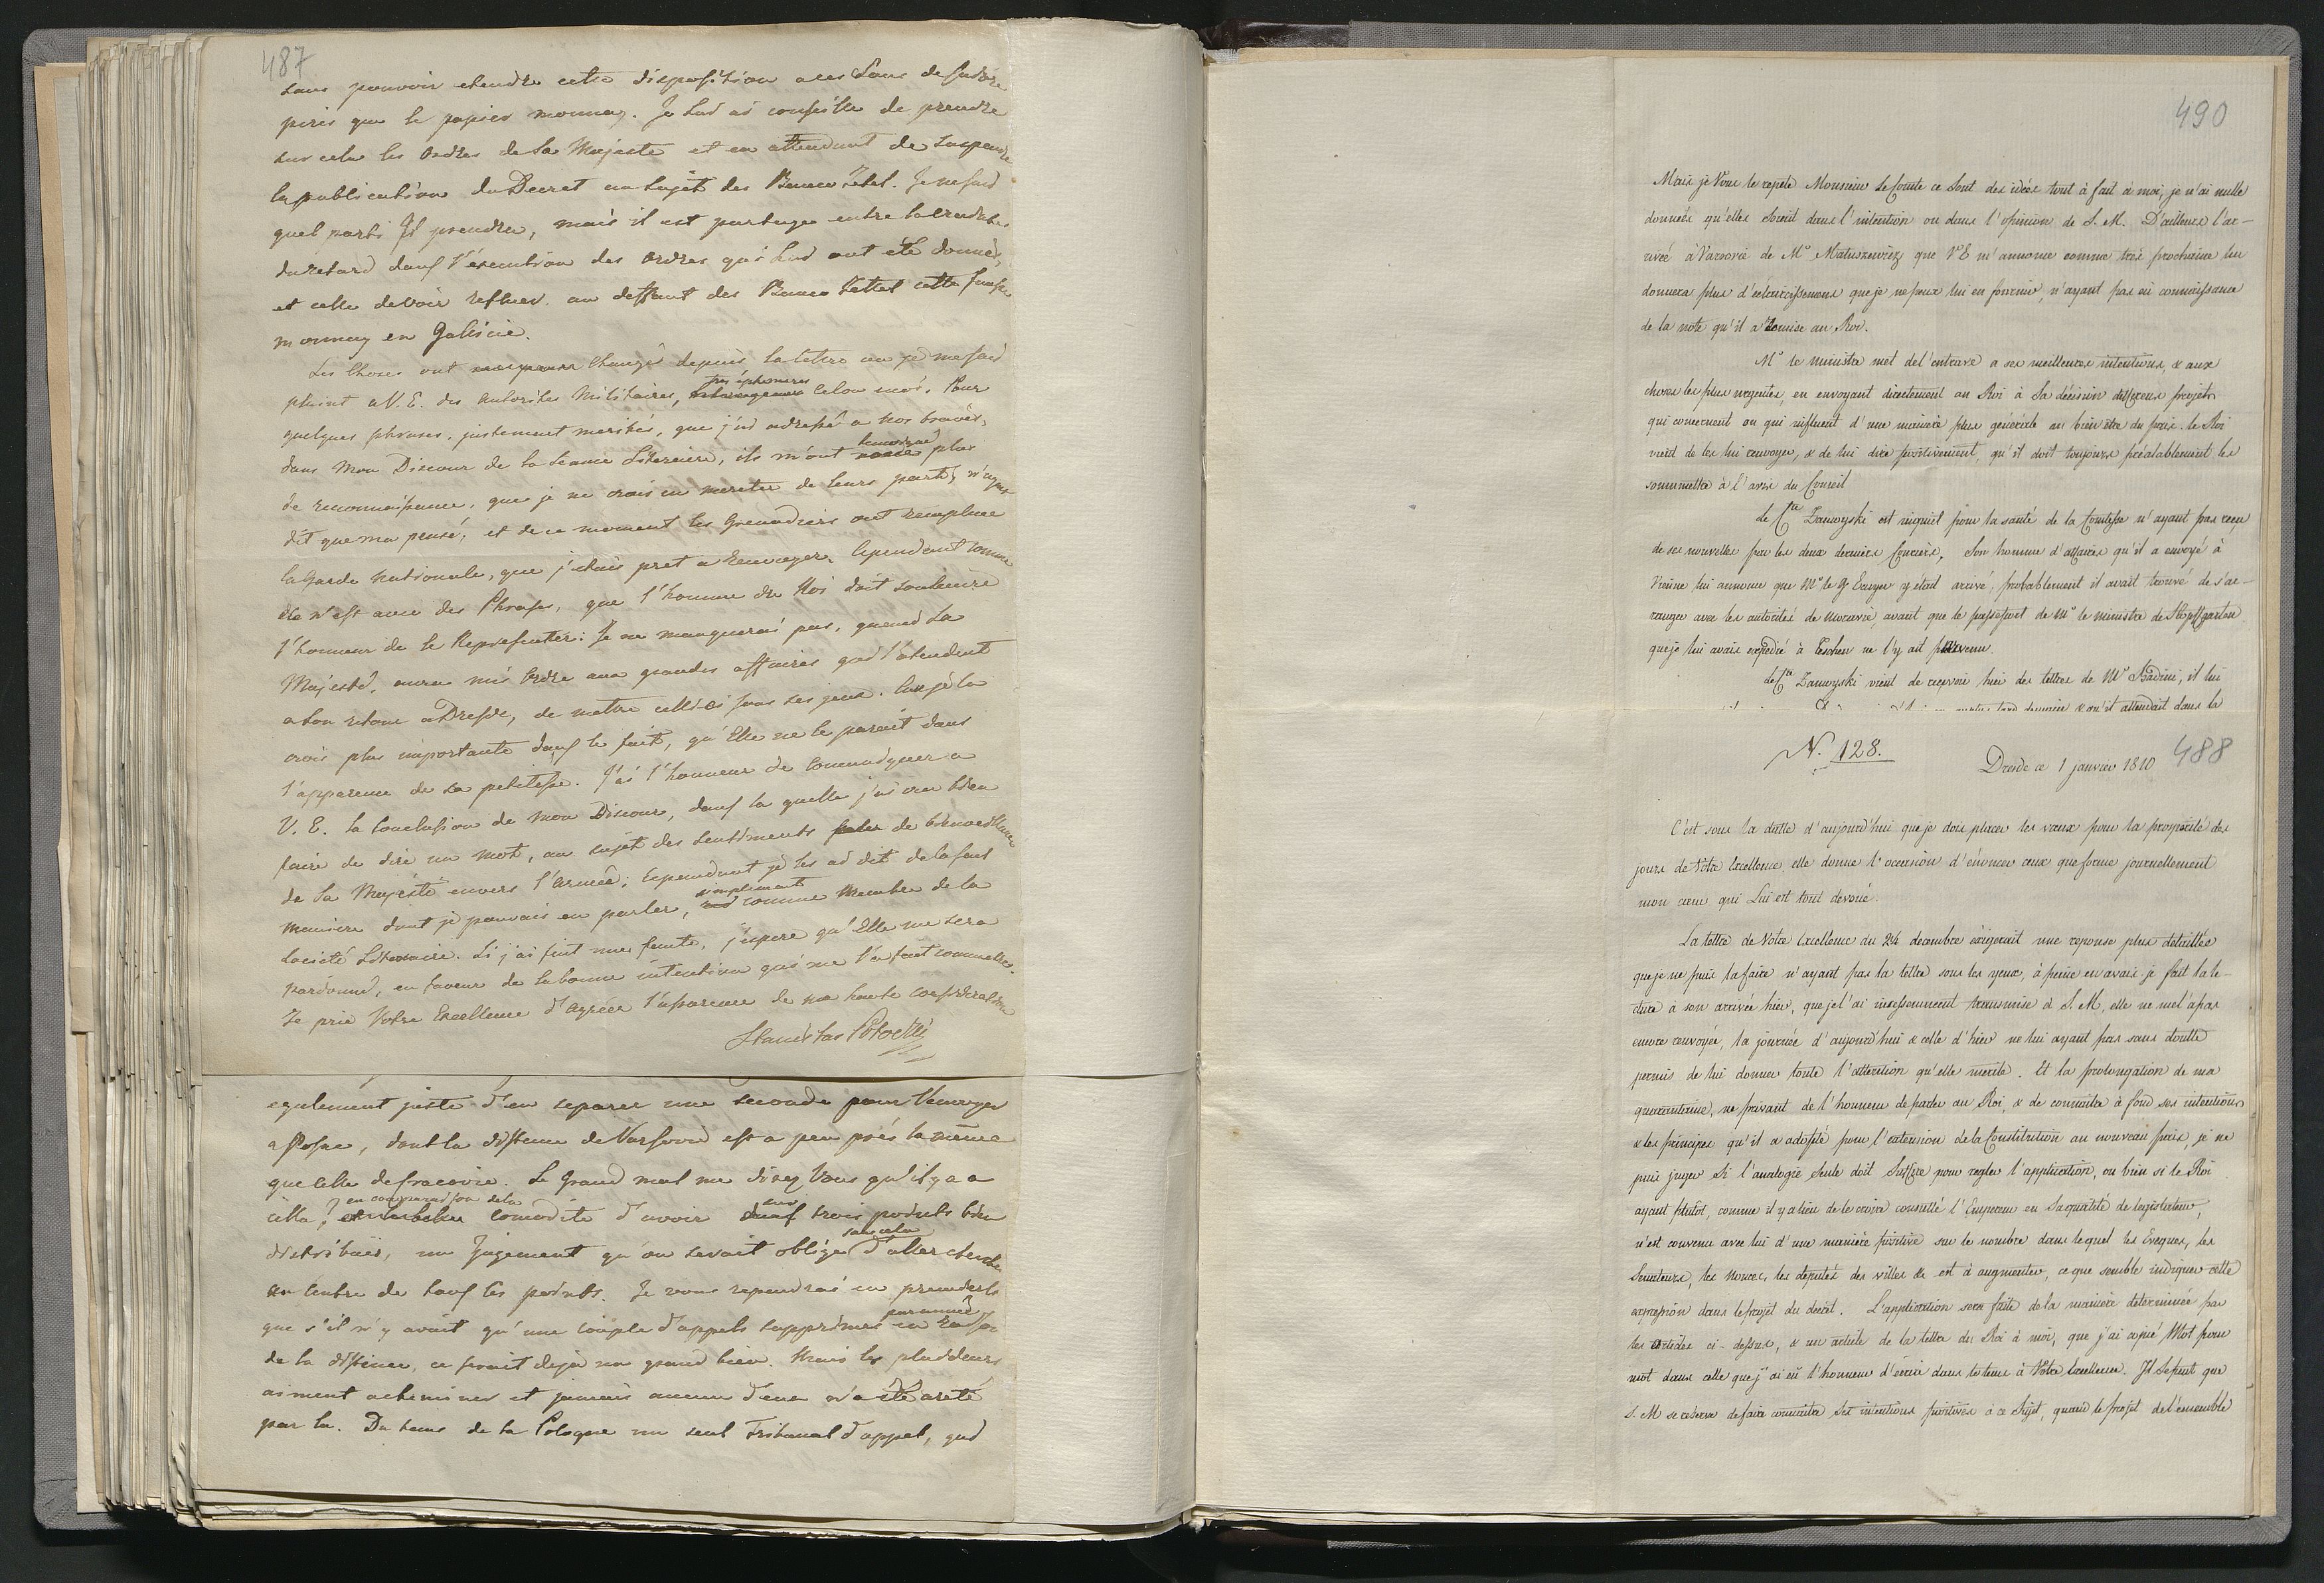 487
sans pouvoir etendre cette disposition a ces Sous de
pires que le papier monnay. Je lui ai conseille de prendre
sur cela les Ordres de Sa Majeste et en attendant de suspendre
la publication du Decret au sujet des Banco Zetel. Je ne sai
quel parti Il prendra, mais il est partage entre la crainte
du retard dans l'execution des Ordres qui lui ont été donnés,
et celle de voir refluer au deffaut des Banco Zettel cette fausse
monnay en Galicie.
Les Choses ont changé depuis la lettre ou je me suis
plaint a V. E. des Autorites Militaires, tres ephemeres selon moi. Pour
quelques phrases, justement meritées, que j'ai adressé a nos braves,
dans mon Discour de la Seance Literaire, ils m'ont temoigné plus
de reconnoissance, que je ne crois en meriter de leurs parts, n'ayant
dit que ma pensé, et de ce moment les Grenadiers ont remplace
la Garde Nationale, que j'étais pret a renvoyer. Cependant comme
ce n'est avec des Phrases, que l'homme du Roi doit soutenir
l'honneur de le Representer: Je ne manquerai pas, quand Sa
Majesté, aura mis Ordre aux grandes affaires qui l'atendent
a son retour a Dresde, de mettre celle ci sous ses yeux. Car je la
crois plus importante dans le fait, qu'Elle ne le parait dans
l'apparence de sa petitesse. J'ai l'honneur de communiquer a
V. E. la Conclusion de mon Discour, dans la quelle j'ai cru bien
faire de dire un mot, au sujet des sentiments de bienveillance
de Sa Majesté envers l'armée; Cependant je les ai dit de la seul
maniere dont je pouvais en parler, simplement comme Membre de la
Societé Literaire. Si j'ai fait une faute, j'espere qu'Elle me sera
pardonné, en faveur de la bonne intention qui me l'a fait commettre.
Je prie Votre Excellence d'agréer l'assurance de ma haute consideration
Stanislas Potocki
egalement juste d'en separer une seconde pour l'envoyer
a Posne, dont la distence de Varsovie est a peu prés la même
que celle de Cracovie. Le Grand mal me direz Vous qu'il y a a
cela, en comparaison de la comodité d'avoir sur trois points bien
distribués, un Jugement qu'on serait obligé sans cela d'aller chercher
au centre de tous les points. Je vous repondrai en premier lieu
que s'il n'y avait qu'une couple d'appels supprimés par année en raison
de la distence, ce serait deja un grand bien. Mais les plaideurs
aiment acheminer et jamais aucun d'eux n'a été areté
par la. Du tems de la Pologne un seul Tribunal d'appel, qui
490
Mais je Vous le repete Monsieur le Comte ce sont des idées tout à fait à moi, je n'ai nulle
donnée qu'elles soient dans l'intention ou dans l'opinion de S. M. D'ailleurs l'ar-
rivée à Varsovie de Mr Matuszewicz que V E m'annonce comme très prochaine lui
donnera plus d'éclaircissemens que je ne peux lui en fournir, n'ayant pas eu connaissance
de la note qu'il a remise au Roi.
Mr le ministre met de l'entrave a ses meilleures intentions, & aux
choses les plus urgentes, en envoyant directement au Roi à Sa décision differens projets
qui concernent ou qui influent d'une manière plus générale au bien être du pais. le Roi
vient de les lui renvoyer, & de lui dire positivement, qu'il doit toujours préalablement les
soummettre à l'avis du Conseil
le Cte Zamoyski est inquiet pour la santé de la Comtesse n'ayant pas reçu
de ses nouvelles par les deux derniers Couriers. Son homme d'affaires qu'il a envoyé à
Vienne lui annonce que Mr le G. y était arrivé, probablement il avait trouvé de s'ar-
ranger avec les autorités de Moravie, avant que le passeport de Mr le ministre de
que je lui avais expedié à Teschen ne l'y ait parvenu.
le Cte Zamoyski vient de recevoir hier des lettres de Mr Badeni, il lui
& qu'il attendait dans la
N. 128.
488
Dresde ce 1 janvier 1810
C'est sous la datte d'aujourd'hui que je dois placer les vœux pour la prosperité des
jours de Votre Excellence, elle donne l'occasion d'énoncer ceux que forme journellement
mon cœur qui Lui est tout devoué.
La lettre de Votre Excellence du 24 decembre éxigerait une reponse plus detaillée
que je ne puis la faire n'ayant pas la lettre sous les yeux, à peine en avais je fait la le-
cture à son arrivée hier, que je l'ai incessamment transmise à S. M, elle ne me l'a pas
encore renvoyée, la journée d'aujourd'hui & celle d'hier ne lui ayant pas sans doutte
permis de lui donner toute l'attention qu'elle merite. Et la prolongation de ma
quarantaine, me privant de l'honneur de parler au Roi, & de connaitre à fond ses intentions
& les principes qu'il a adopté pour l'extension de la Constitution au nouveau pais, je ne
puis juger si l'analogie seule doit suffire pour regler l'application, ou bien si le Roi
ayant plutôt, comme il y a lieu de le croire consulté l'Empereur en Sa qualité de legislateur,
n'est convenu avec lui d'une manière positive sur le nombre dans lequel les Eveques, les
Senateurs, les Nonces, les deputés des villes &c est à augmenter, ce que semble indiquer cette
expression dans le projet du decret. L'application sera faite de la manière determinée par
les articles ci-dessus, & un article de la lettre du Roi à moi, que j'ai copié Mot pour
mot dans celle que j'ai eü l'honneur d'écrire dans le tems à Votre Excellence. Il se peut que
S. M se reserve de faire connaitre Ses intentions positives à ce Sujet, quand le projet de l'ensemble